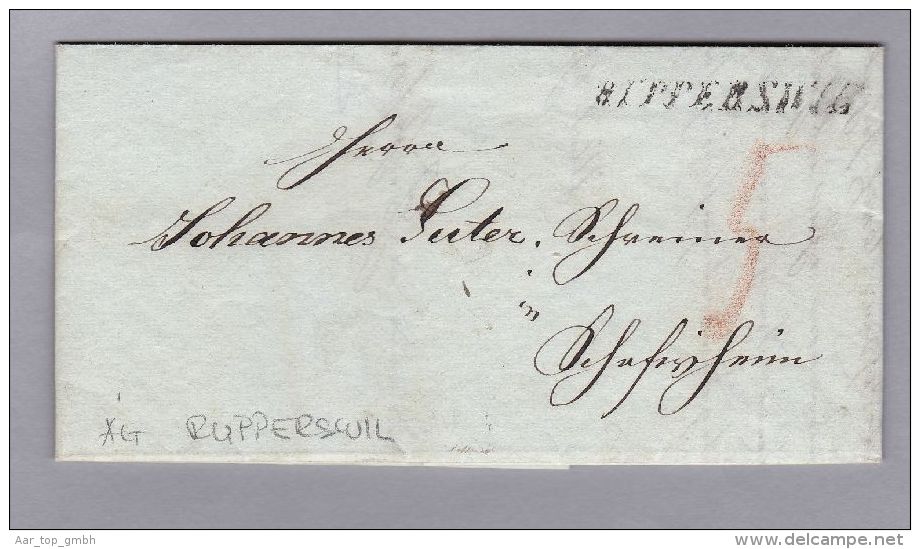 RUPPERSWIL
Herrn
Johannes Suter, Schreiner
in
Schafisheim
5
AG RUPPERSWIL
Aar_top_gmbh
delcampe.net